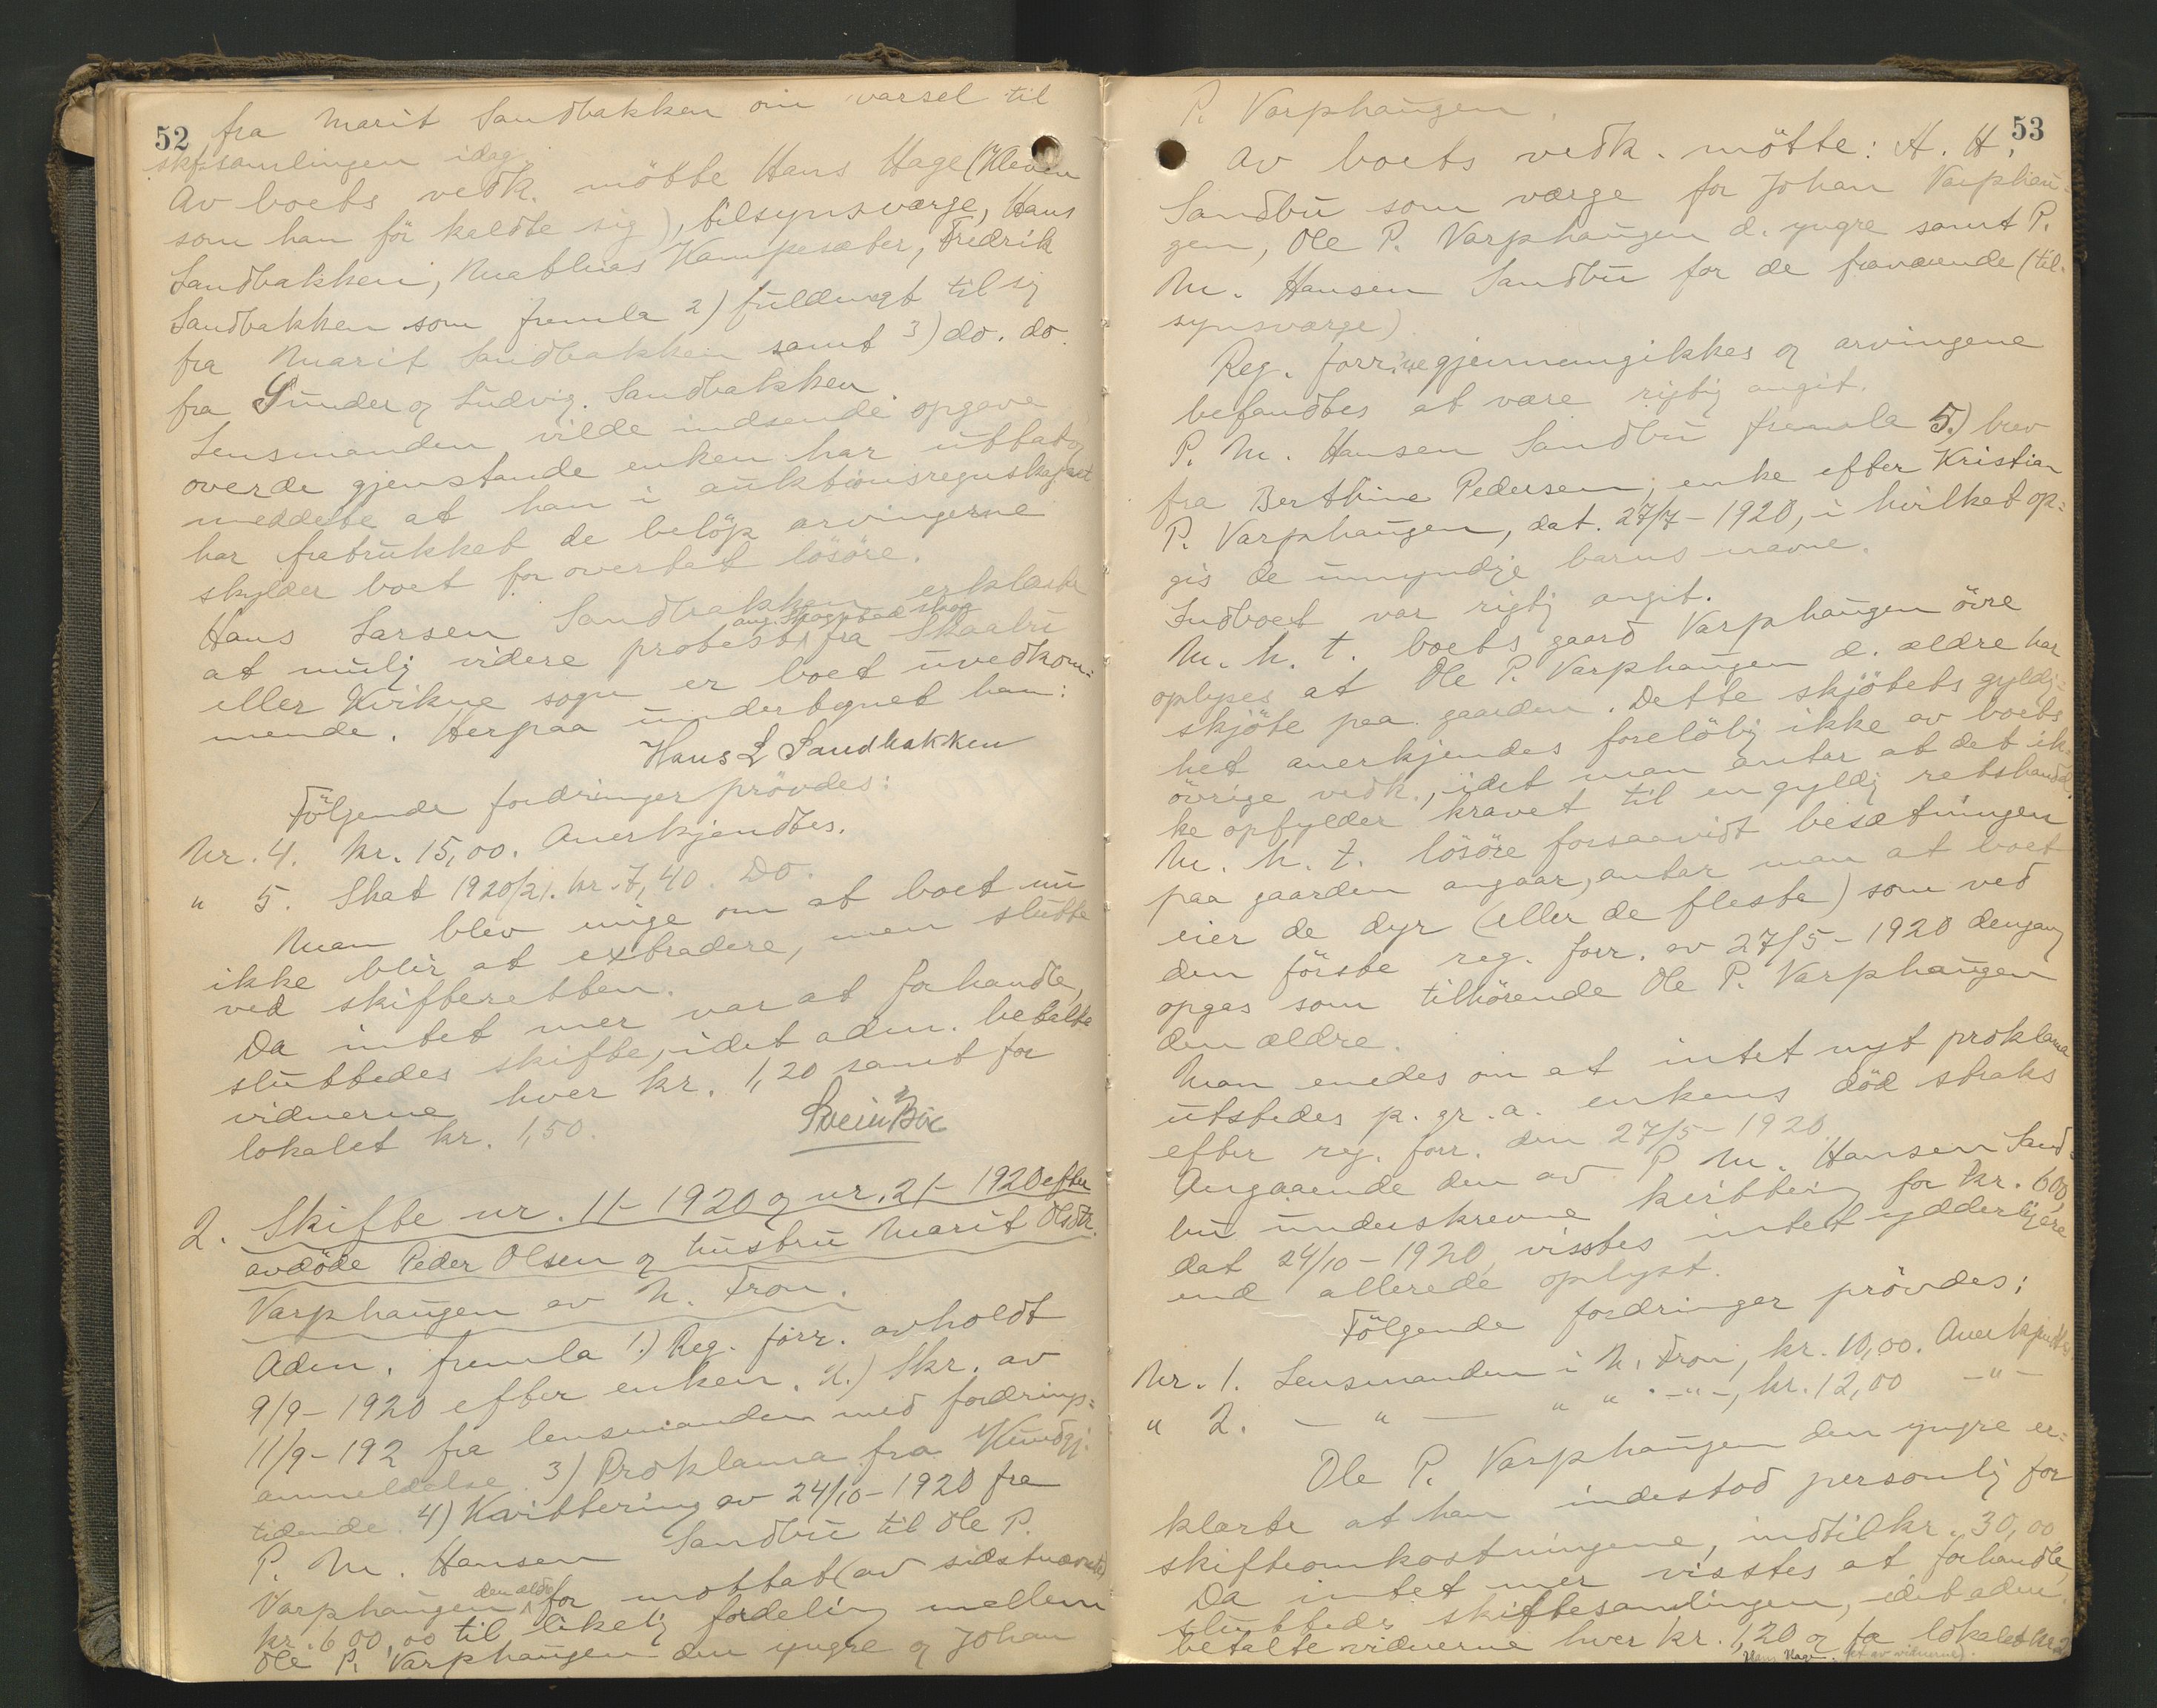 52
fra Marit Sandbakken om varsel til
skfsamlingen idag.
Av boets vedk. møtte Hans Hage (Kleven
som han för kaldte sig), tilsynsværge, Hans
Sandbakken, Mathias Kampesæter, Fredrik
Sandbakken som fremla 2) fuldmagt til sig
fra Marit Sandbakken samt 3) do. do.
fra Gunder og Ludvig Sandbakken.
Lensmanden vilde indsende opgave
over de gjenstande enken har uttat og
meddelte at han i auktionsregnskapet
har fratrukket de beløp arvingerne
skylder boet for overtat lösöre.
Hans Larsen Sandbakken erklærte
ang. Skogstad skog
at mulig videre protest fra Skaabu
eller Kvikne sogn er boet uvedkom-
mende. Herpaa undertegnet han:
Hans L Sandbakken
Fölgende fordringer prövdes:
Nr. 4. kr. 15,00. Anerkjendtes.
" 5. Skat 1920/21. kr. 7,40. Do.
Man blev enige om at boet nu
ikke blir at extradere, men slutte
ved skifteretten.
Da intet mer var at forhandle,
sluttedes skifte, idet adm. betalte
vidnerne hver kr. 1,20 samt for
lokalet kr. 1,50.
2. Skifte nr. 11 - 1920 og nr. 21 - 1920 efter
avdöde Peder Olsen og hustru Marit Olsdtr.
Varphaugen av N. Fron.
Adm. fremla 1.) Reg. forr. avholdt
9/9 - 1920 efter enken. 2.) Skr. av
11/9 - 192 fra lensmanden med fordrings-
anmeldelse. 3) Proklama fra Kundgj.
tidende. 4) Kvittering av 24/10 - 1920 fra
P. M. Hansen Sandbu til Ole P.
Varphaugen den ældre for mottat (av sidstnævnte)
kr. 600,00 til likelig fordeling mellem
Ole P. Varphaugen den yngre og Johan
53
P. Varphaugen.
Av boets vedk. mötte: H. H.
Sandbu som værge for Johan Varphau-
gen, Ole P. Varphaugen d. yngre samt P.
M. Hansen Sandbu for de fraværende (til-
synsværge).
Reg. forr.'ne gjennemgikkes og arvingene
befandtes at være rigtig angit.
P. M. Hansen Sandbu fremla 5.) brev
fra Berthine Pedersen, enke efter Kristian
P. Varphaugen, dat. 27/7 - 1920, i hvilket op-
gis de umyndige barns navne.
Indboet var rigtig angit.
M. h. t. boets gaard Varphaugen övre
oplyses at Ole P. Varphaugen d. ældre har
skjöte paa gaarden. Dette skjötets gyldig-
het anerkjendes forelöbig ikke av boets
övrige vedk., idet man antar at det ik-
ke opfylder kravet til en gyldig retshandel.
M. h. t. lösöre forsaavidt besætningen
paa gaarden angaar, antar man at boet
eier de dyr (eller de fleste) som ved
den förste reg. forr. av 27/5 - 1920 dengang
opgas som tilhörende Ole P. Varphaugen
den ældre.
Man enedes om at intet nyt proklama
utstedes p. gr. a. enkens död straks
efter reg. forr. den 27/5 - 1920.
Angaaende den av P. M. Hansen Sand-
bu underskrevne kvittering for kr. 600,
dat 24/10 - 1920, visstes intet ydderligere
end allerede oplyst.
Fölgende fordringer prövdes:
Nr. 1. Lensmanden i N. Fron, kr. 10,00. Anerkjendtes
" 2. — " — " " - " -, kr. 12,00 - " -
Ole P. Varphaugen den yngre er-
klærte at han indestod personlig for
skifteomkostningene, indtil kr. 30,00.
Da intet mer visstes at forhandle,
sluttedes skiftesamlingen, idet adm.
betalte vidnerne hver kr. 1,20 og for lokalet kr. 2
Hans Hage. (et av vidnerne).